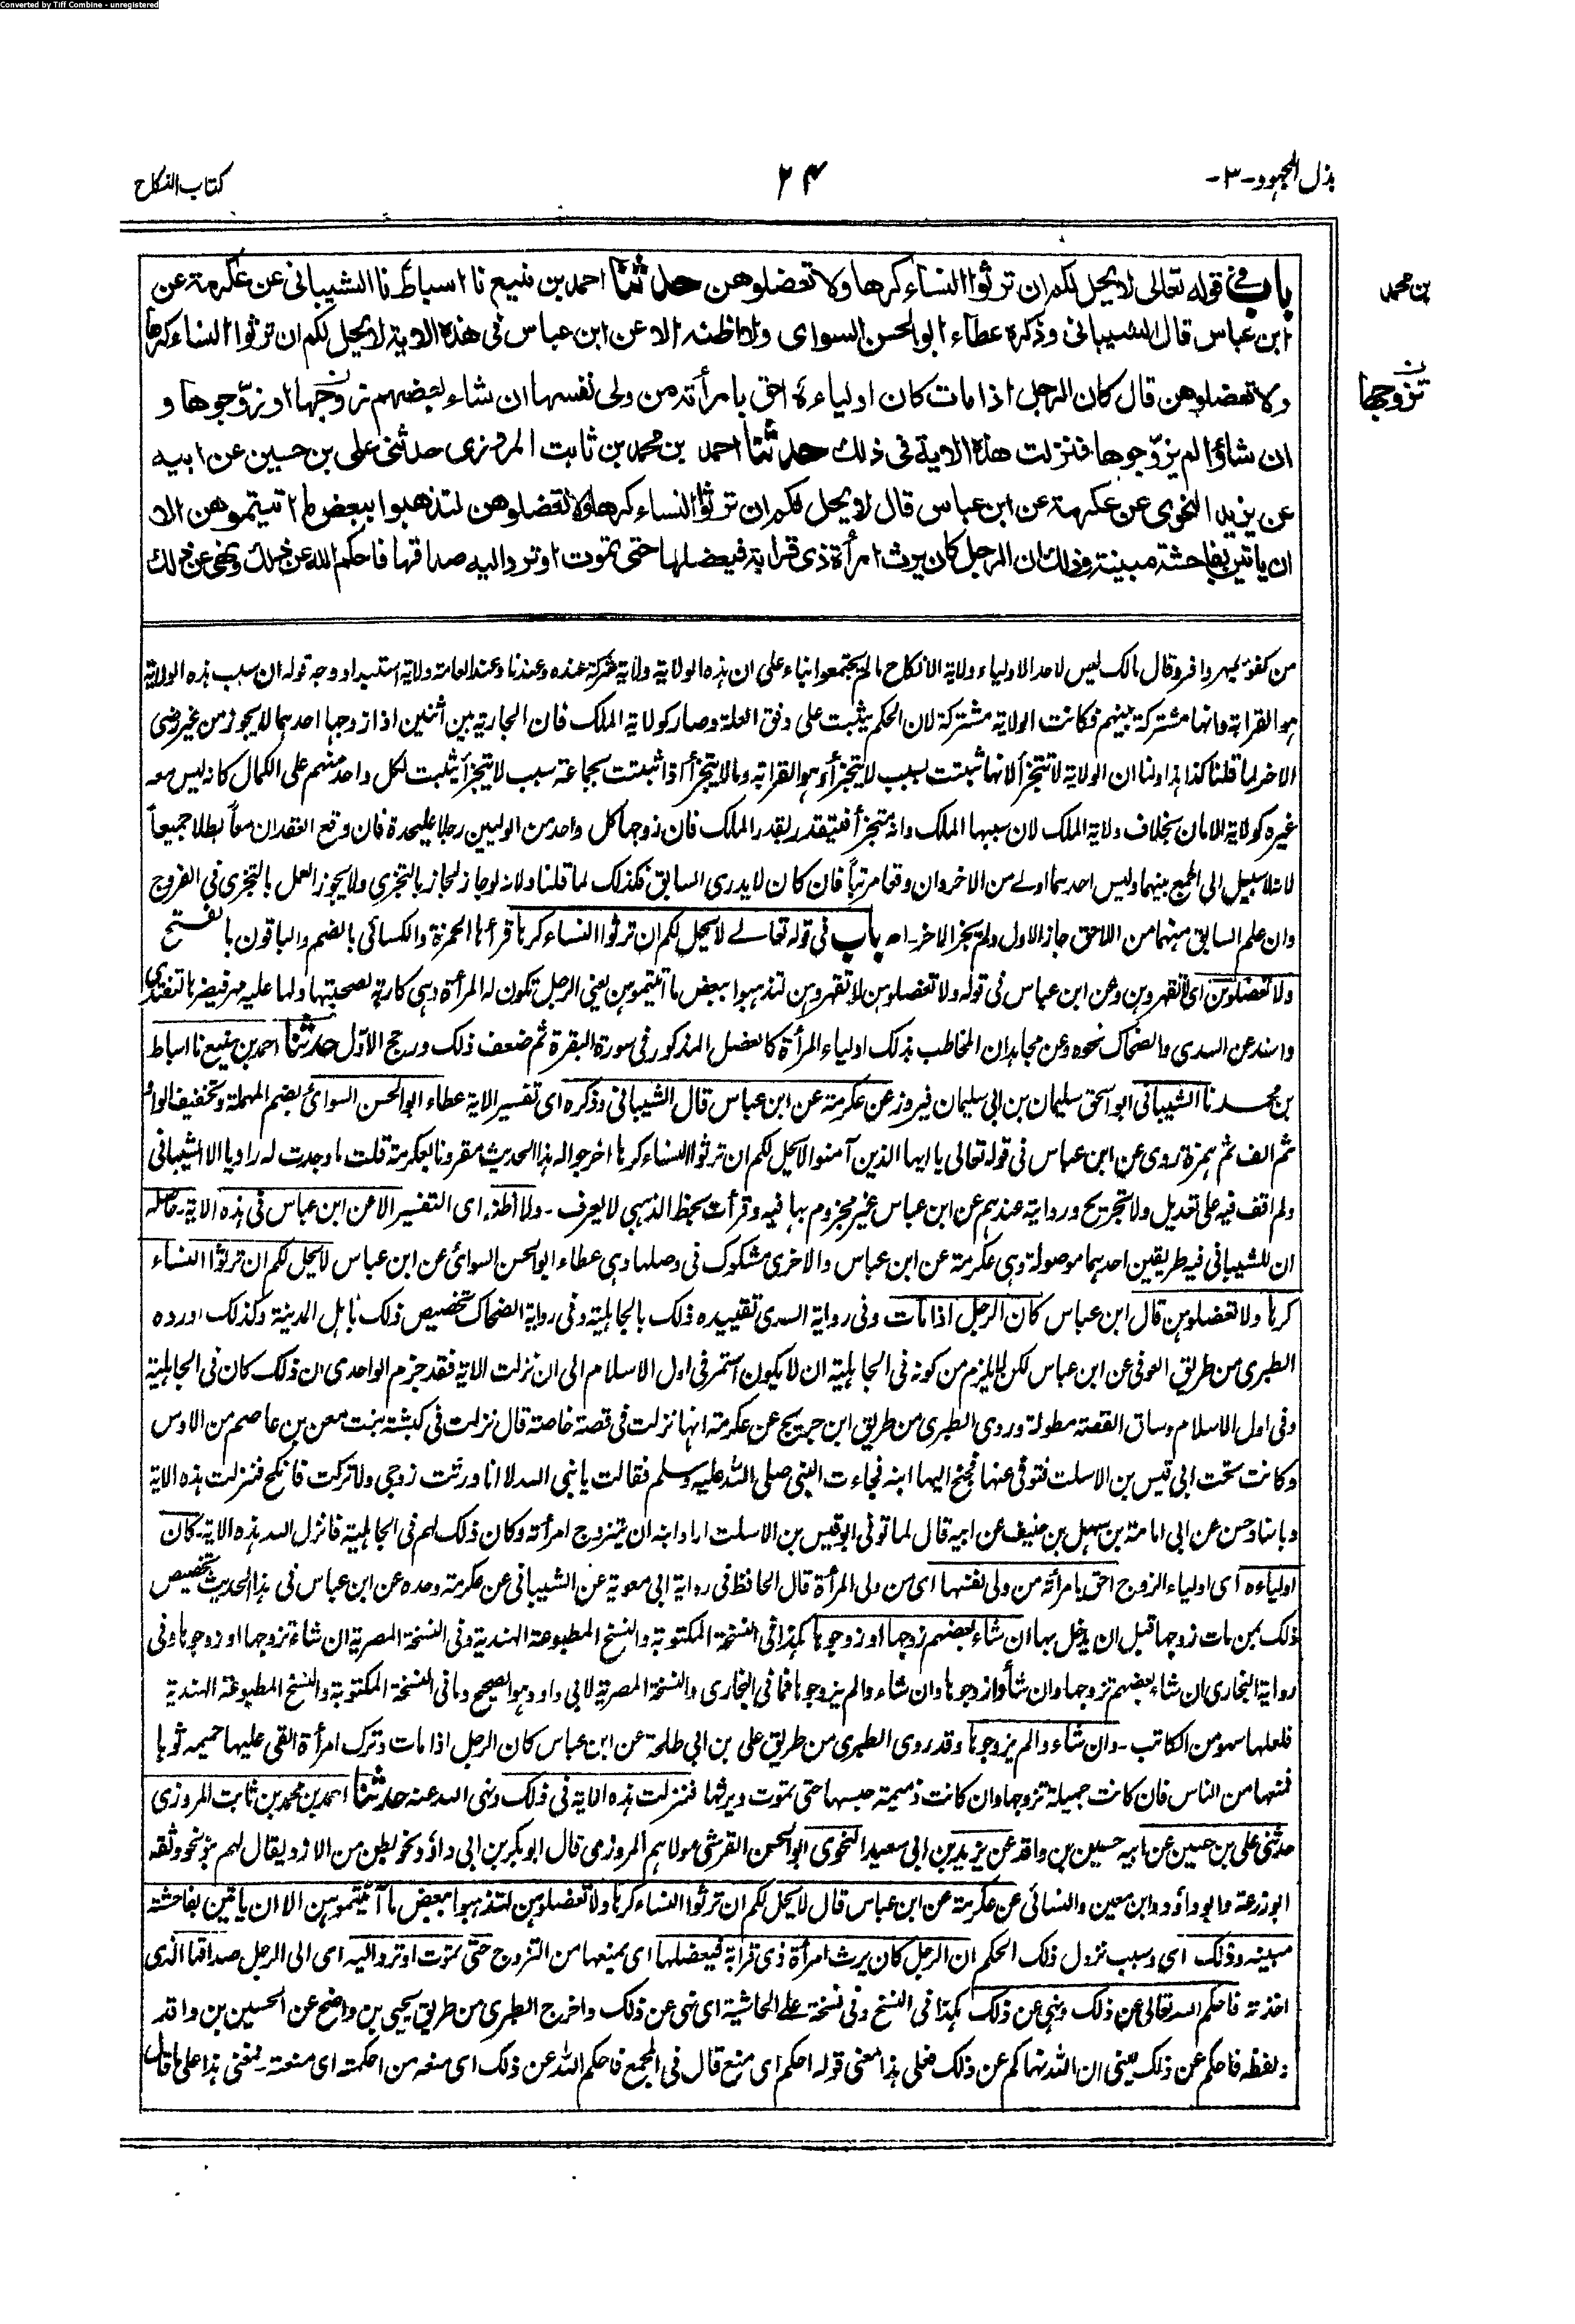 Converted by Tiff Combine - unregistered
بذل المجهود -٣-
٢٤
كتاب النكاح
باب في قوله تعالى لا يحل لكم ان ترثوا النساء كرها ولا تعضلوهن حدثنا احمد بن منيع نا اسباط نا الشيباني عن عكرمة عن
بن محمد
ابن عباس قال الشيباني وذكره عطاء ابو الحسن السوائي ولا اظنه الا عن ابن عباس في هذه الاية لا يحل لكم ان ترثوا النساء كرها
ولا تعضلوهن قال كان الرجل اذا مات كان اولياءه احق بامرأته من ولي نفسها ان شاء بعضهم زوجها او زوّجوها و
ن
تزوجها
ان شاؤا لم يزوّجوها فنزلت هذه الاية في ذلك حدثنا احمد بن محمد بن ثابت المروزي حدثني علي بن حسين عن ابيه
عن يزيد النحوي عن عكرمة عن ابن عباس قال لا يحل لكم ان ترثوا النساء كرها ولا تعضلوهن لتذهبوا ببعض ما اتيتموهن الا
ان ياتين بفاحشة مبينة وذلك ان الرجل كان يرث امرأة ذي قرابة فيعضلها حتى تموت او ترد اليه صداقها فاحكم الله عن ذلك ونهى عن ذلك
من كفؤ بمهر وافر وقال مالك ليس لاحد الاولياء ولاية الانكاح ما لم يجتمعوا بناء على ان هذه الولاية ولاية شركة عنده وعندنا وعند العامة ولاية استبداد وجه قوله ان سبب هذه الولاية
هو القرابة وانها مشتركة بينهم فكانت الولاية مشتركة لان الحكم يثبت على وفق العلة وصار كولاية الملك فان الجارية بين اثنين اذا زوجها احدهما لا يجوز من غير رضى
الاخر لما قلنا كذا هذا ولنا ان الولاية لا تتجزأ لانها ثبتت بسبب لا يتجزأ وهو القرابة وما لا يتجزأ اذا ثبتت بجماعة سبب لا يتجزأ يثبت لكل واحد منهم على الكمال كانه ليس معه
غيره كولاية الامان بخلاف ولاية الملك لان سببها الملك وانه متجزأ فيتقدر بقدر الملك فان زوجها كل واحد من الوليين رجلا عليحدة فان وقع العقدان معاً بطلا جميعاً
لانه لا سبيل الى الجمع بينهما وليس احدهما اولى من الاخر وان وقعا مرتباً فان كان لا يدرى السابق فكذلك لما قلنا ولانه لو جاز لجاز بالتحري ولا يجوز العمل بالتحري في الفروج
وان علم السابق منهما من اللاحق جاز الاول ولم يجز الاخر۔اھ باب في قوله تعالى لا يحل لكم ان ترثوا النساء كرها قرأها الحمزة والكسائي بالضم والباقون بالفتح
ولا تعضلوهن اى لا تقهروهن وعن ابن عباس في قوله ولا تعضلوهن لا تقهروهن لتذهبوا ببعض ما آتيتموهن يعني الرجل تكون له المرأة وهي كارهة لصحبتها ولها عليه مهر فيضرها لتفتدى
واسند عن السدى والضحاك نحوه وعن مجاهد ان المخاطب بذلك اولياء المرأة كالعضل المذكور في سورة البقرة ثم ضعف ذلك ورجح الاوّل حدثنا احمد بن منيع نا اسباط
بن محمد نا الشيباني ابو اسحق سليمان بن ابي سليمان فيروز عن عكرمة عن ابن عباس قال الشيباني وذكره اى تفسير الاية عطاء ابو الحسن السوائى بضم المهملة وتخفيف الواو
ثم الف ثم همزة روى عن ابن عباس في قوله تعالى يا ايها الذين آمنوا لا يحل لكم ان ترثوا النساء كرها اخرجوا له هذا الحديث مقرونا بعكرمة قلت ما وجدت له راويا الا الشيباني
ولم اقف فيه على تعديل ولا تجريح وروايته عندهم عن ابن عباس غير مجزوم بها فيه وقرأت بخط الذهبي لا يعرف ۔ ولا اظنه اى التفسير الا عن ابن عباس في هذه الاية۔ حاصله
ان للشيباني فيه طريقين احدهما موصولة وهي عكرمة عن ابن عباس والاخرى مشكوك في وصلها وهي عطاء ابو الحسن السوائى عن ابن عباس لا يحل لكم ان ترثوا النساء
كرها ولا تعضلوهن قال ابن عباس كان الرجل اذا مات وفي رواية السدى تقييده ذلك بالجاهلية وفي رواية الضحاك تخصيص ذلك باهل المدينة وكذلك اورده
الطبرى من طريق العوفى عن ابن عباس لكن لا يلزم من كونه في الجاهلية ان لا يكون استمر في اول الاسلام الى ان نزلت الاية فقد جزم الواحدى ان ذلك كان في الجاهلية
وفي اول الاسلام وساق القصة مطولة وروى الطبرى من طريق ابن جريج عن عكرمة انها نزلت في قصة خاصة قال نزلت في كبشة بنت معن بن عاصم من الاوس
وكانت تحت ابي قيس بن الاسلت فتوفى عنها فجنح اليها ابنه فجاءت النبي صلى الله عليه وسلم فقالت يا نبي الله لا انا ورثت زوجي ولا تركت فانكح فنزلت هذه الاية
وباسناد حسن عن ابي امامة بن سهل بن حنيف عن ابيه قال لما توفى ابو قيس بن الاسلت اراد ابنه ان يتزوج امرأته وكان ذلك لهم في الجاهلية فانزل الله هذه الاية۔ كان
اولياءه اى اولياء الزوج احق بامرأته من ولى نفسها اى من ولى المرأة قال الحافظ في رواية ابي معوية عن الشيباني عن عكرمة وحده عن ابن عباس في هذا الحديث تخصيص
ذلك بمن مات زوجها قبل ان يدخل بها ان شاء بعضهم زوجها او زوجوها هكذا في النسخة المكتوبة والنسخ المطبوعة الهندية وفي النسخة المصرية ان شاء تزوجها او زوجوها وفي
رواية البخارى ان شاء بعضهم تزوجها وان شأوا زوجوها وان شاءوا لم يزوجوها فما في البخارى والنسخة المصرية لابي داود هو الصحيح وما في النسخة المكتوبة والنسخ المطبوعة الهندية
فلعلها سهو من الكاتب ۔ وان شاءوا لم يزوجوها وقد روى الطبرى من طريق على بن ابي طلحة عن ابن عباس كان الرجل اذا مات وترك امرأة القى عليها حميمه ثوبا
فمنعها من الناس فان كانت جميلة تزوجها وان كانت ذميمة حبسها حتى تموت ويرثها فنزلت هذه الاية في ذلك ونهى الله عنه حدثنا احمد بن محمد بن ثابت المروزى
حدثني على بن حسين عن ابيه حسين بن واقد عن يزيد بن ابي سعيد النحوى ابو الحسن القرشى مولاهم المروزى قال ابو بكر بن ابي داؤد ونحو بطن من الازد يقال لهم بنو نحو وثقه
ابو زرعة وابو داؤد وابن معين والنسائى عن عكرمة عن ابن عباس قال لا يحل لكم ان ترثوا النساء كرها ولا تعضلوهن لتذهبوا ببعض ما آتيتموهن الا ان ياتين بفاحشة
مبينة وذلك اى وسبب نزول ذلك الحكم ان الرجل كان يرث امرأة ذى قرابة فيعضلها اى يمنعها من التزوج حتى تموت او ترد اليه اى الى الرجل صداقها الذى
اخذته فاحكم الله تعالى عن ذلك ونهى عن ذلك هكذا في النسخ وفي نسخة على الحاشية اى نهى عن ذلك واخرج الطبرى من طريق يحيى بن واضح عن الحسين بن واقد
ولفظه فاحكم عن ذلك يعني ان الله نهاكم عن ذلك فعلى هذا معنى قوله احكم اى منع قال في المجمع فاحكم الله عن ذلك اى منعه من احكمته اى منعته ۔ فمعنى هذا على ما قال